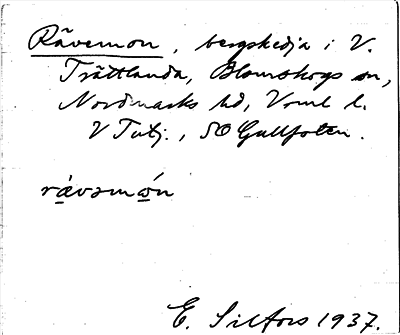 Rävemon, bergskedja i V.
Trättlanda, Blomskogs sn,
Nordmarks hd, Vrml l.
V Tutj., SO Gullfoten.
rävəmón
E. Silfors 1937.